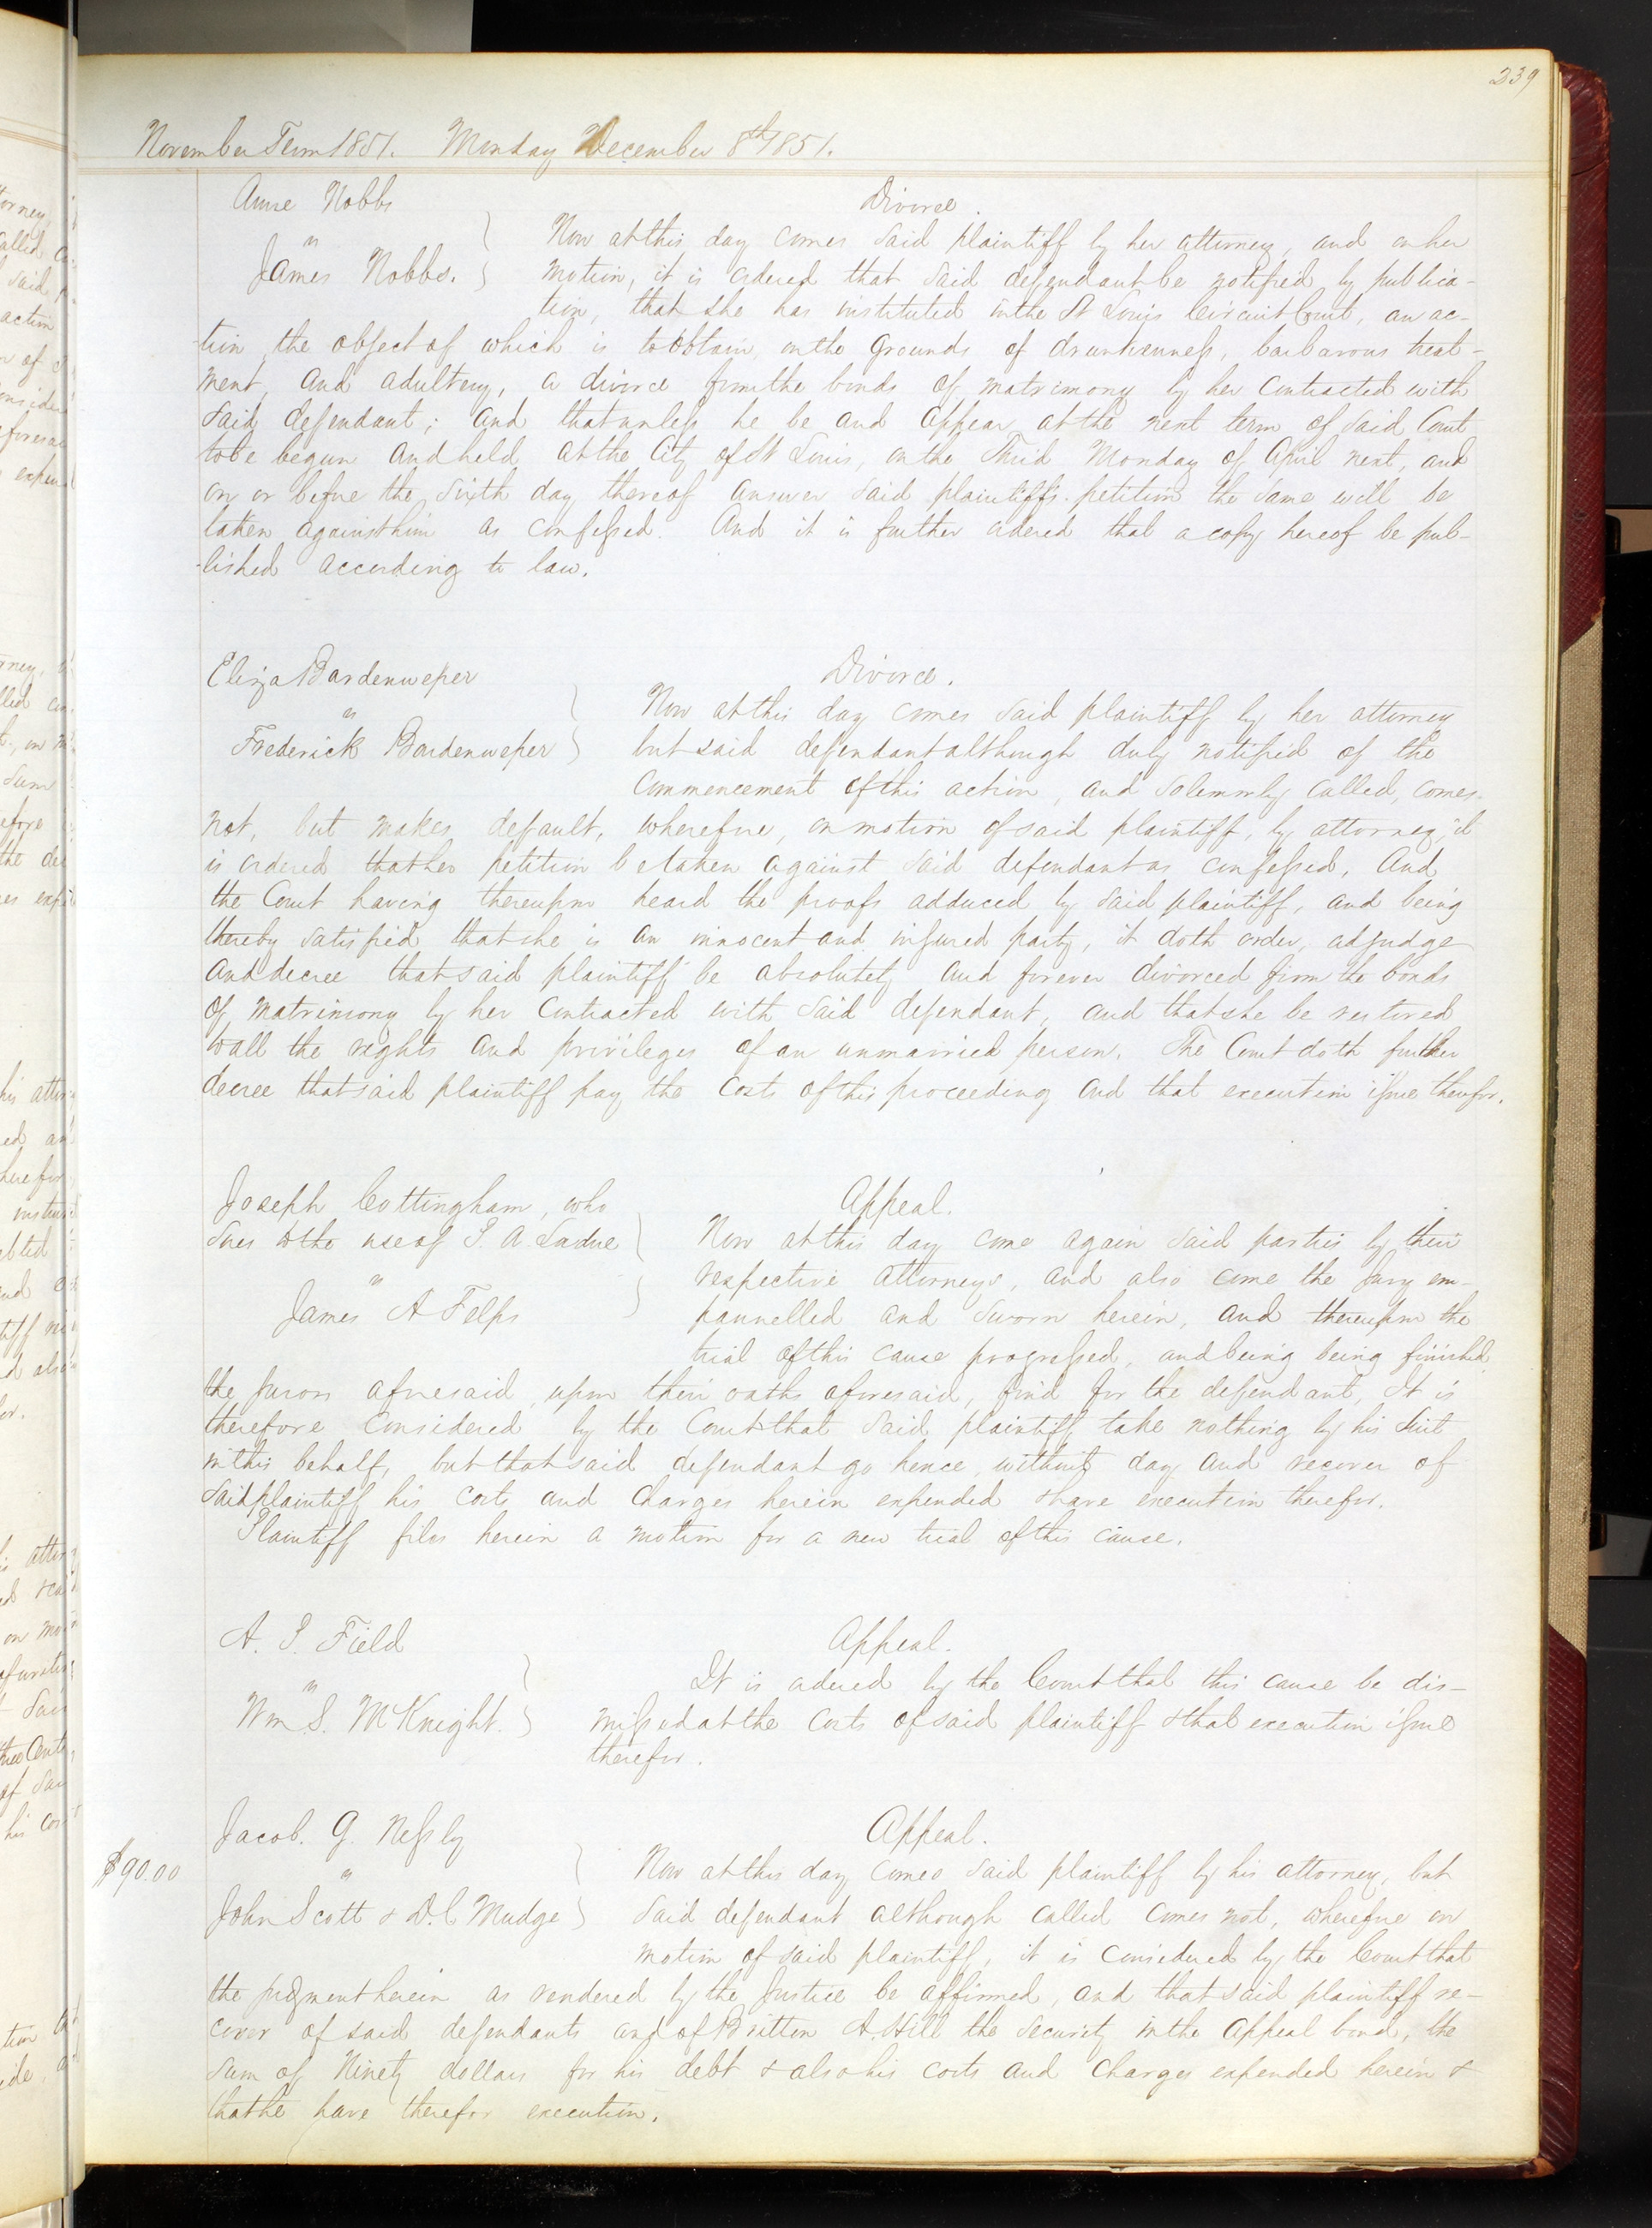 239
November Term 1851. Monday December 8th 1851.
Anne Nobbs
vs
James Nobbs.
Divorce.
Now at this day comes said plaintiff by her attorney, and on her
motion, it is ordered that said defendant be notified by publica-
tion, that she has instituted in the St Louis Circuit Court, an ac-
-tion, the object of which is to obtain on the grounds of drunkenness, barbarous treat-
ment, and adultery, a divorce from the bonds of matrimony by her contracted with
said defendant; and that unless he be and appear at the next term of said Court
to be begun and held at the City of St Louis, on the Third Monday of April next, and
on or before the Sixth day thereof answer said plaintiff's petition the same will be
taken against him as confessed. And it is further ordered that a copy hereof be pub-
-lished according to law.
Eliza Bardenweper
vs
Frederick Bardenweper
Divorce.
Now at this day comes said plaintiff by her attorney
but said defendant although duly notified of the
commencement of this action, and solemnly called, comes
not, but makes default, wherefore, on motion of said plaintiff, by attorney, it
is ordered that her petition be taken against said defendant as confessed. And
the Court having thereupon heard the proofs adduced by said plaintiff, and being
thereby satisfied that she is an innocent and injured party, it doth order, adjudge
and decree that said plaintiff be absolutely and forever divorced from the bonds
of matrimony by her contracted with said defendant, and that she be restored
to all the rights and privileges of an unmarried person. The Court doth further
decree that said plaintiff pay the costs of this proceeding and that execution issue therefor.
Joseph Cottingham, who
sues to the use of P. A. Ladue
vs
James A Felps
Appeal.
Now at this day come again said parties by their
respective attorneys, and also come the jury em-
pannelled and sworn herein, and thereupon the
trial of this cause progressed, and being being finished,
the jurors aforesaid, upon their oaths aforesaid, find for the defendant, It is
therefore considered by the Court that said plaintiff take nothing by his suit
in this behalf, but that said defendant go hence without day and recover of
said plaintiff his costs and charges herein expended & have execution therefor.
Plaintiff files herein a motion for a new trial of this cause.
A. P. Field
vs
Wm S. McKnight.
Appeal.
It is ordered by the Court that this cause be dis-
missed at the costs of said plaintiff & that execution issue
therefor.
$90.00
Jacob. G. Nessly
vs
John Scott & D. C Mudge
Appeal.
Now at this day comes said plaintiff by his attorney, but
said defendant although called comes not, wherefore on
motion of said plaintiff, it is considered by the Court that
the judgment herein as rendered by the Justice be affirmed, and that said plaintiff re-
cover of said defendants and of Britton A. Hill the security in the appeal bond, the
sum of Ninety dollars for his debt & also his costs and charges expended herein &
that he have therefor execution.